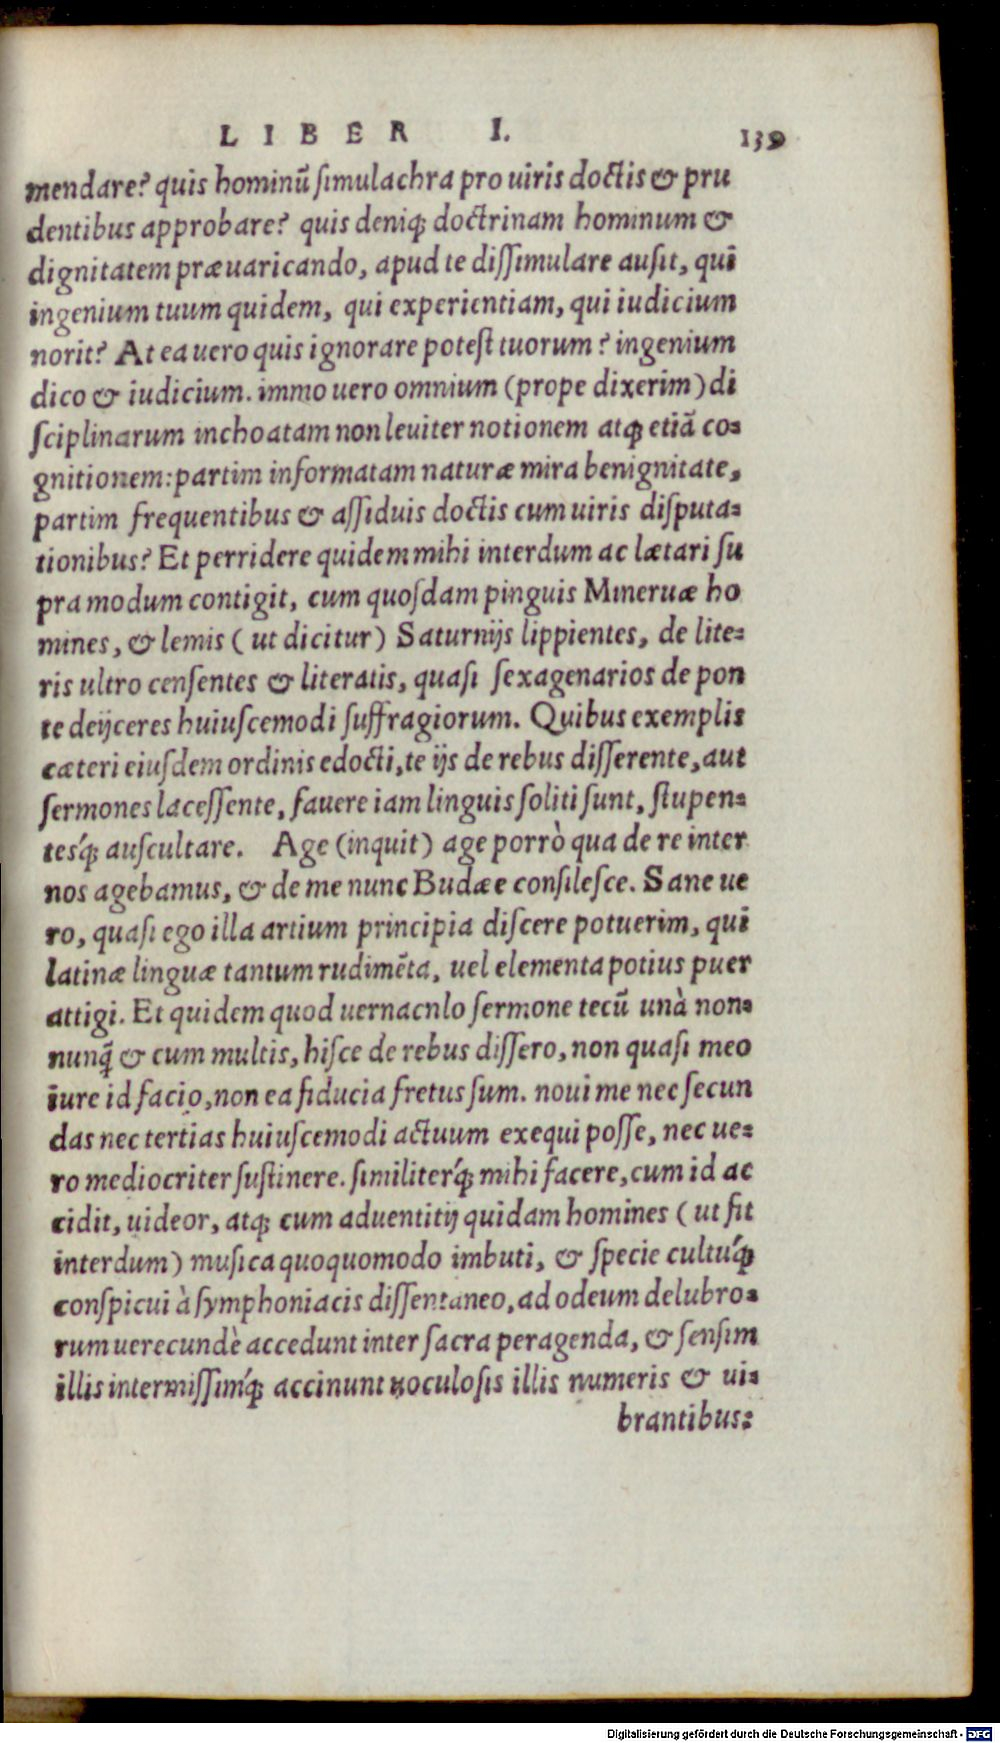 LIBER I. 139
mendare? quis hominū ſimulachra pro uiris doctis & pru
dentibus approbare? quis deniqꝫ doctrinam hominum &
dignitatem præuaricando, apud te diſſimulare auſit, qui
ingenium tuum quidem, qui experientiam, qui iudicium
norit? At ea uero quis ignorare poteſt tuorum? ingenium
dico & iudicium. immo uero omnium (prope dixerim) di
ſciplinarum inchoatam non leuiter notionem atqꝫ etiā co=
gnitionem: partim informatam naturæ mira benignitate,
partim frequentibus & aſſiduis doctis cum uiris diſputa=
tionibus? Et perridere quidem mihi interdum ac lætari ſu
pra modum contigit, cum quoſdam pinguis Mineruæ ho
mines, & lemis (ut dicitur) Saturnijs lippientes, de lite=
ris ultro cenſentes & literatis, quaſi ſexagenarios de pon
te deijceres huiuſcemodi ſuffragiorum. Quibus exemplis
cæteri eiuſdem ordinis edocti, te ijs de rebus diſſerente, aut
ſermones laceſſente, fauere iam linguis ſoliti ſunt, ſtupen=
tesq́ꝫ auſcultare. Age (inquit) age porrò qua de re inter
nos agebamus, & de me nunc Budæe conſileſce. Sane ue
ro, quaſi ego illa artium principia diſcere potuerim, qui
latinæ linguæ tantum rudimēta, uel elementa potius puer
attigi. Et quidem quod uernacnlo ſermone tecū unà non=
nunq̄ & cum multis, hiſce de rebus diſſero, non quaſi meo
iure id facio, non ea fiducia fretus ſum. noui me nec ſecun
das nec tertias huiuſcemodi actuum exequi poſſe, nec ue=
ro mediocriter ſuſtinere. ſimiliterq́ꝫ mihi facere, cum id ac
cidit, uideor, atqꝫ cum aduentitij quidam homines (ut fit
interdum) muſica quoquomodo imbuti, & ſpecie cultuq́ꝫ
conſpicui à ſymphoniacis diſſentaneo, ad odeum delubro=
rum uerecundè accedunt inter ſacra peragenda, & ſenſim
illis intermiſſimq́ꝫ accinunt noculoſis illis numeris & ui=
brantibus:
Digitalisierung gefördert durch die Deutsche Forschungsgemeinschaft - DFG